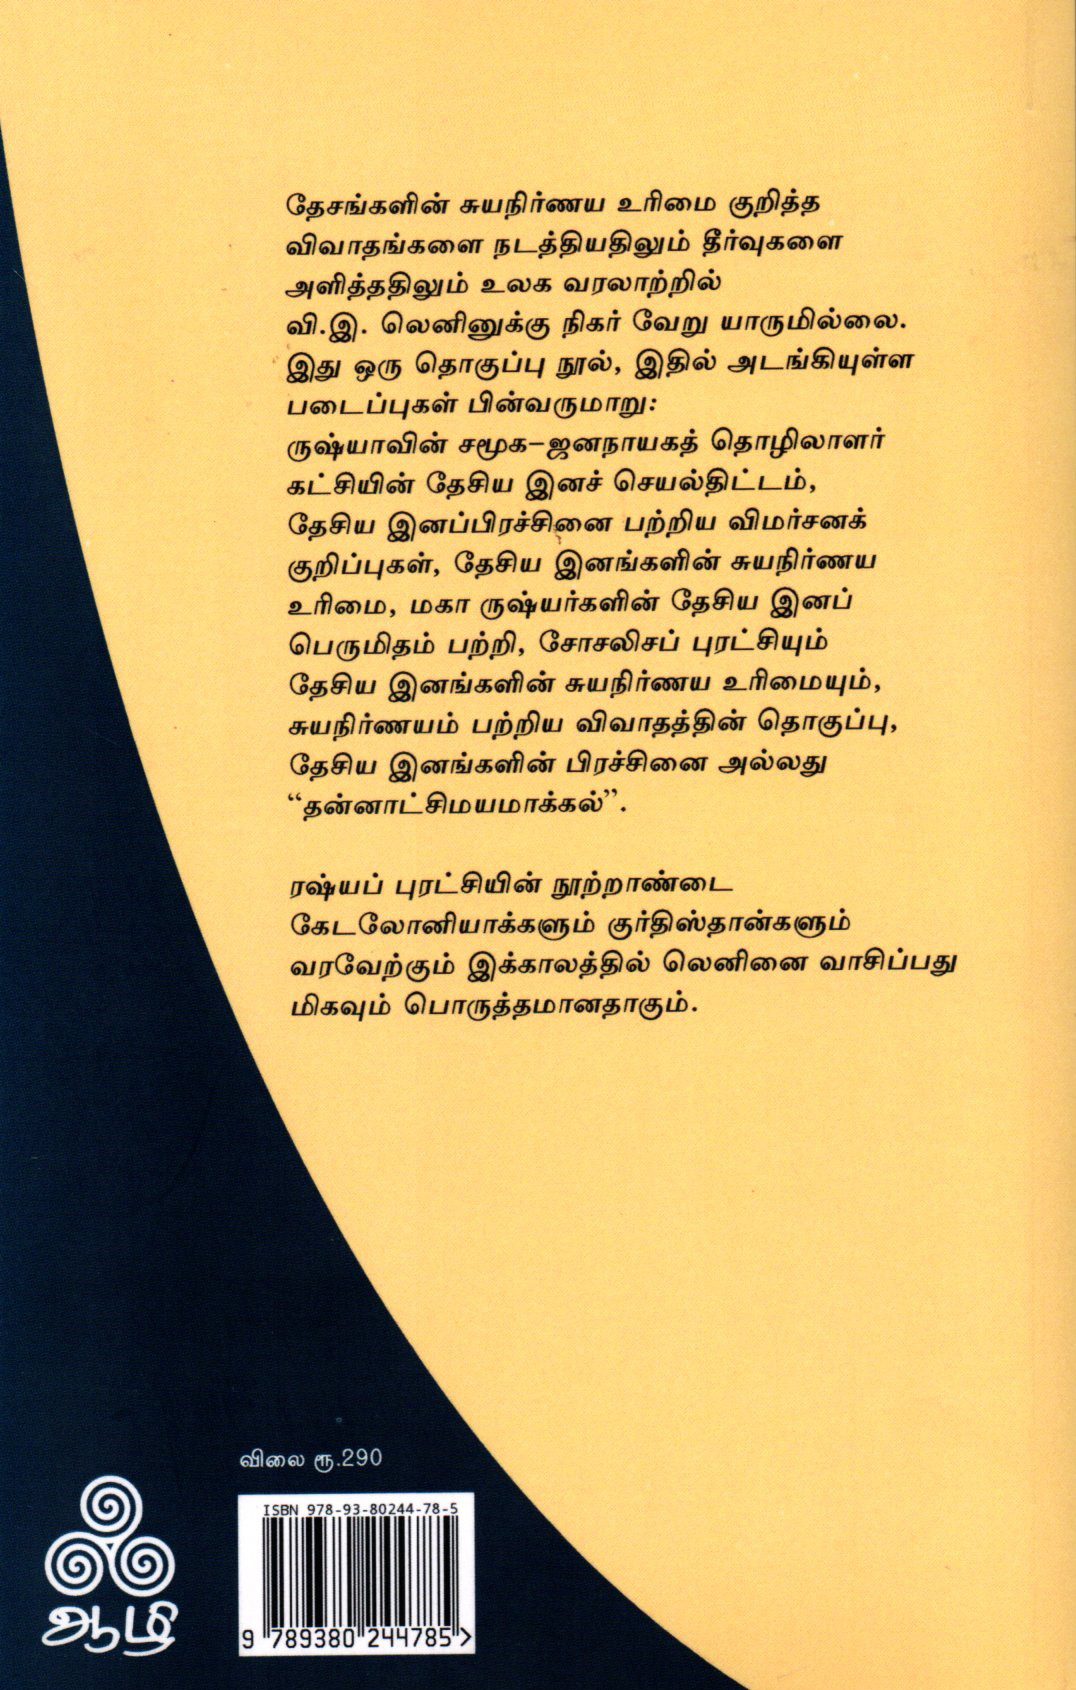 தேசங்களின் சுயநிர்ணய உரிமை குறித்த
விவாதங்களை நடத்தியதிலும் தீர்வுகளை
அளித்ததிலும் உலக வரலாற்றில்
வி.இ. லெனினுக்கு நிகர் வேறு யாருமில்லை.
இது ஒரு தொகுப்பு நூல், இதில் அடங்கியுள்ள
படைப்புகள் பின்வருமாறு:
ருஷ்யாவின் சமூக–ஜனநாயகத் தொழிலாளர்
கட்சியின் தேசிய இனச் செயல்திட்டம்,
தேசிய இனப்பிரச்சினை பற்றிய விமர்சனக்
குறிப்புகள், தேசிய இனங்களின் சுயநிர்ணய
உரிமை, மகா ருஷ்யர்களின் தேசிய இனப்
பெருமிதம் பற்றி, சோசலிசப் புரட்சியும்
தேசிய இனங்களின் சுயநிர்ணய உரிமையும்,
சுயநிர்ணயம் பற்றிய விவாதத்தின் தொகுப்பு,
தேசிய இனங்களின் பிரச்சினை அல்லது
“தன்னாட்சிமயமாக்கல்”.
ரஷ்யப் புரட்சியின் நூற்றாண்டை
கேடலோனியாக்களும் குர்திஸ்தான்களும்
வரவேற்கும் இக்காலத்தில் லெனினை வாசிப்பது
மிகவும் பொருத்தமானதாகும்.
விலை ரூ.290
ISBN 978-93-80244-78-5
9 789380 244785>
ஆழி